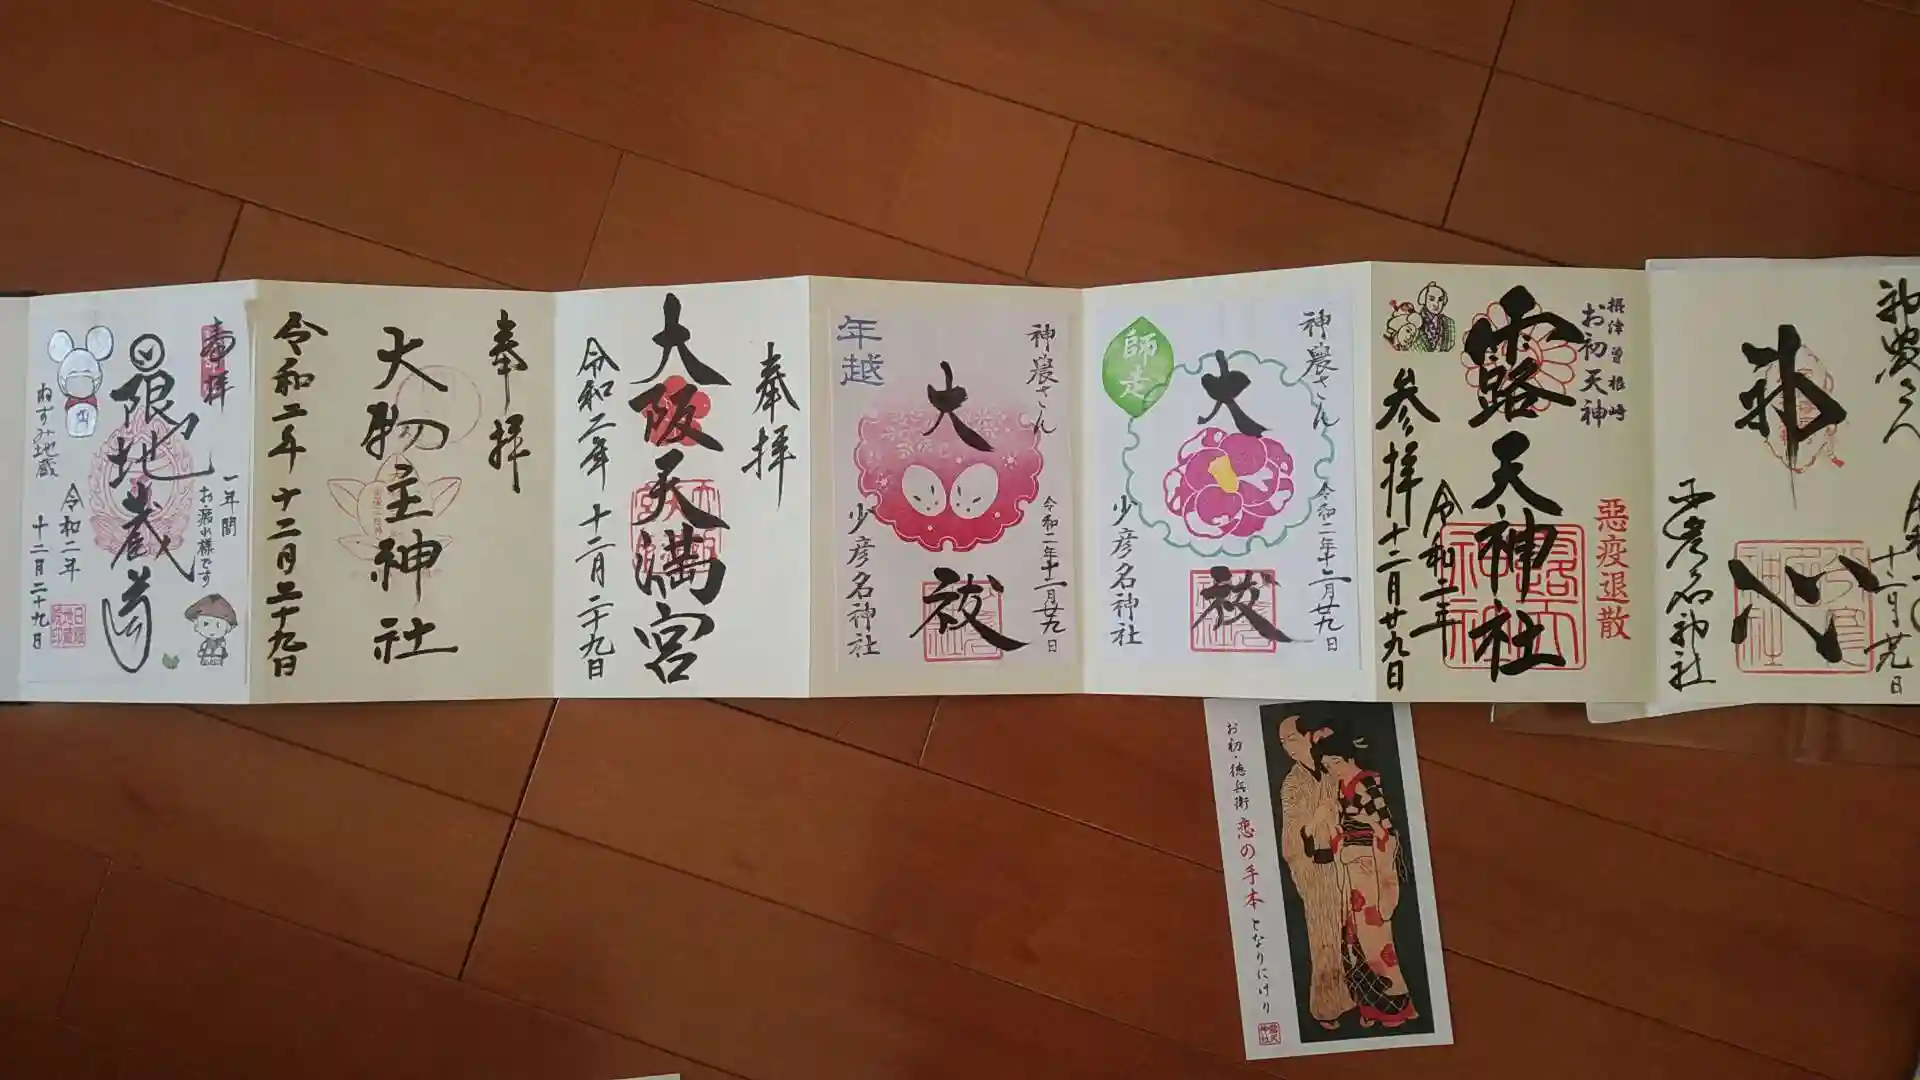 奉拝
限定
地蔵尊
一年間
お疲れ様です
ねずみ地蔵
令和二年
十二月二十九日
奉拝
大物主神社
令和二年十二月二十九日
奉拝
大阪天満宮
令和二年十二月二十九日
神農さん
年越
大祓
令和二年十二月廿九日
少彦名神社
神農さん
師走
大祓
令和二年十二月廿九日
少彦名神社
摂津曽根崎
お初天神
露天神社
悪疫退散
参拝
令和二年
十二月廿九日
神農さん
十二月廿九日
少彦名神社
お初・徳兵衛
恋の手本
となりにけり
露天神社